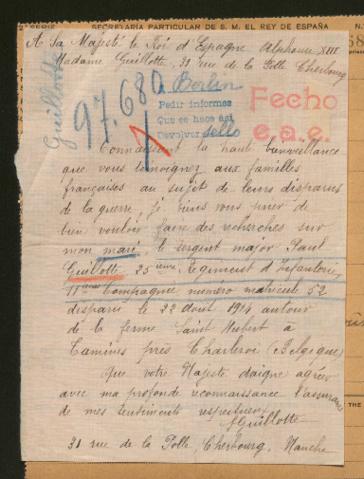 SECRETARÍA PARTICULAR DE S. M. EL REY DE ESPAÑA
A Sa Majesté le Roi d'Espagne Alphonse XIII
Madame Guillotte, 31 rue de la Polle Cherbourg
Guillotte
97.680
a Berlin
Pedir informes
Que se hace así
Devolver sello
Fecho
e.a.e.
Connaissant la haute bienveillance
que vous témoignez aux familles
françaises au sujet de leurs disparus
de la guerre, je viens vous prier de
bien vouloir faire des recherches sur
mon mari le sergent major Paul
Guillotte 25ieme Regiment d'Infanterie
11eme Compagnie numero matricule 52
disparu le 22 aout 1914 autour
de la ferme Saint Hubert à
Tamines près Charleroi (Belgique)
Que votre Majesté daigne agréer
avec ma profonde reconnaissance l'assurance
de mes sentiments respectueux
Guillotte
31 rue de la Polle, Cherbourg, Manche